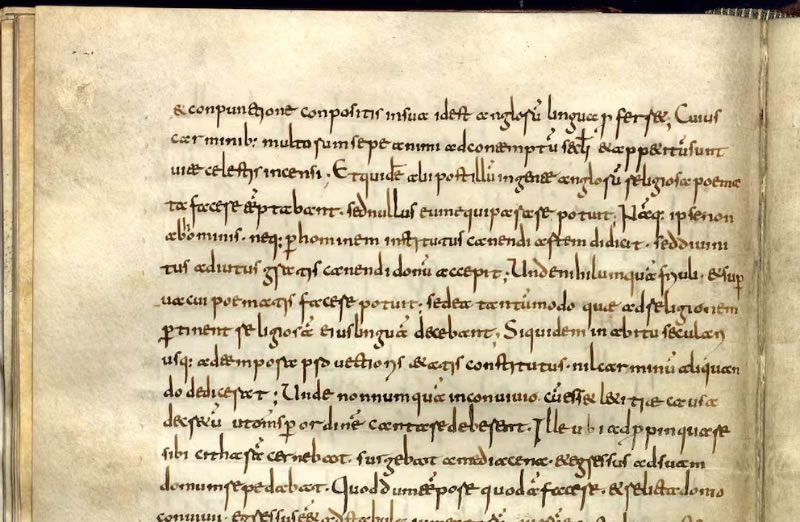 & conpunctione conpositis insua idest anglorū lingua ꝓferret; Cuius
carminib; multorum sepe animi adcontemptū secłi & appetitū sunt
uitae celestis incensi · Et quidē alii postillū ingente anglorū religiosa poema
ta facere tēptabant · sed nullus eum equiparare potuit · Nāq; ipse non
abhominis · neq; ꝑhominem institutus canendi artem didicit · sed diuini
tus adiutus gratis canendi donū accepit; Unde nihil umquā friuoli · & suꝑ
uacui poematis facere potuit; sedea tantūmodo quae adreligionem
ꝑtinent religiosā eius linguā decebant; Siquidem in abitu seculari
usq; adtempora prouectioris &atis constitutus · nil carminū aliquan
do dedicerat; Unde nonnumquā inconuiuio · cū ess& letitiae causa
decretū ut omnis ꝑ ordinē cantare deberent · Ille ubi adꝓpinquare
sibi citharā cernebat · surgebat amediacena · & egressus adsuam
domum repedabat · Quod dum tēpore quodā faceret · & relicta domo
conuiuii · egressus